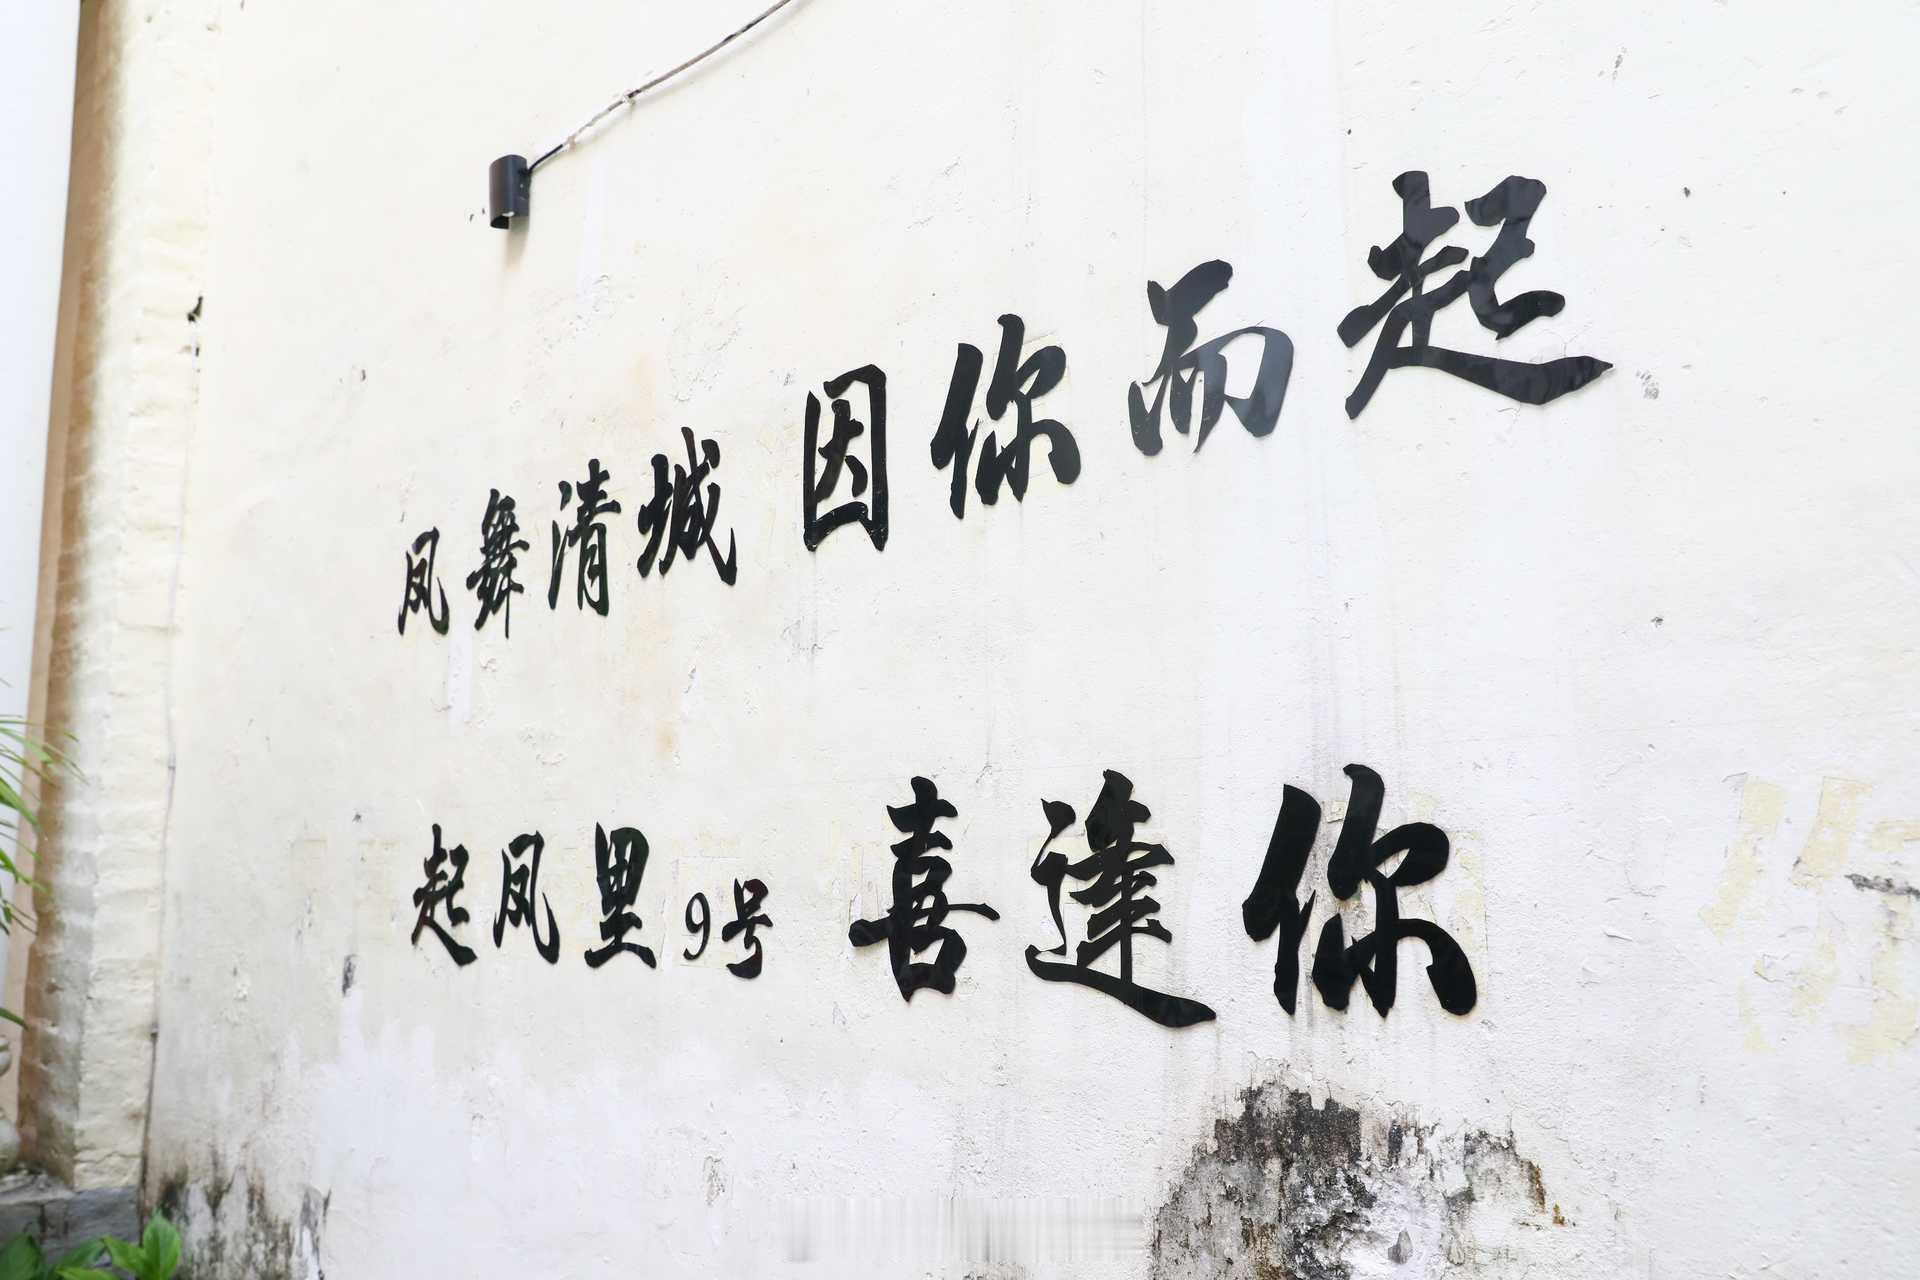 凤舞清城 因你而起
起凤里9号 喜逢你